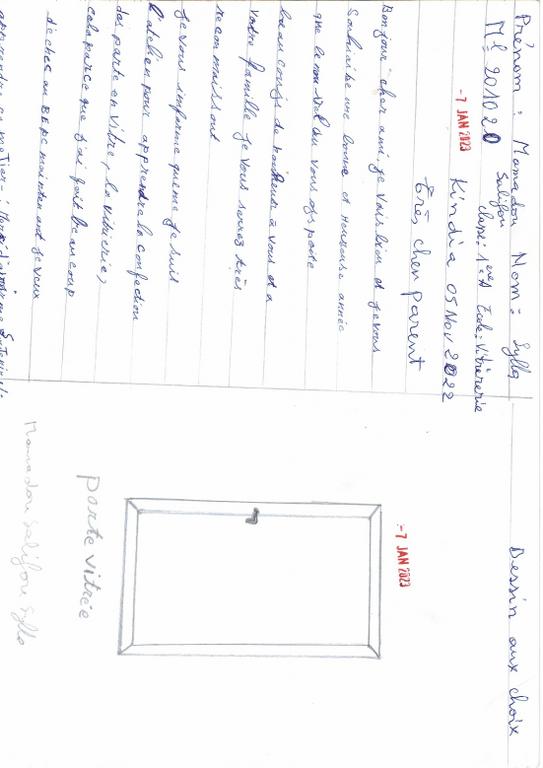 Prénom : Mamadou Nom : Sylla
Salifou
ML 201020 classe : 1ère A Ecole : Vitrérerie
-7 JAN 2023
Kindia 05 Nov 2022
Très cher parent
Bonjour cher ami, je vais bien et je vous
souhaite une bonne et heureuse année
que le nouvel du vous apporte
beaucoup de bonheur à vous et a
votre famille je vous serres très
reconnaissant
je vous informe que je suit
l'atelier pour apprendre la confection
des porte en vitre, la vitrerie,
cela parce que j'ai fait beaucoup
déchec au BEPC maintenant je veux
apprendre ce metier
Dessin aux choix
-7 JAN 2023
porte vitrée
Mamadou Salifou Sylla